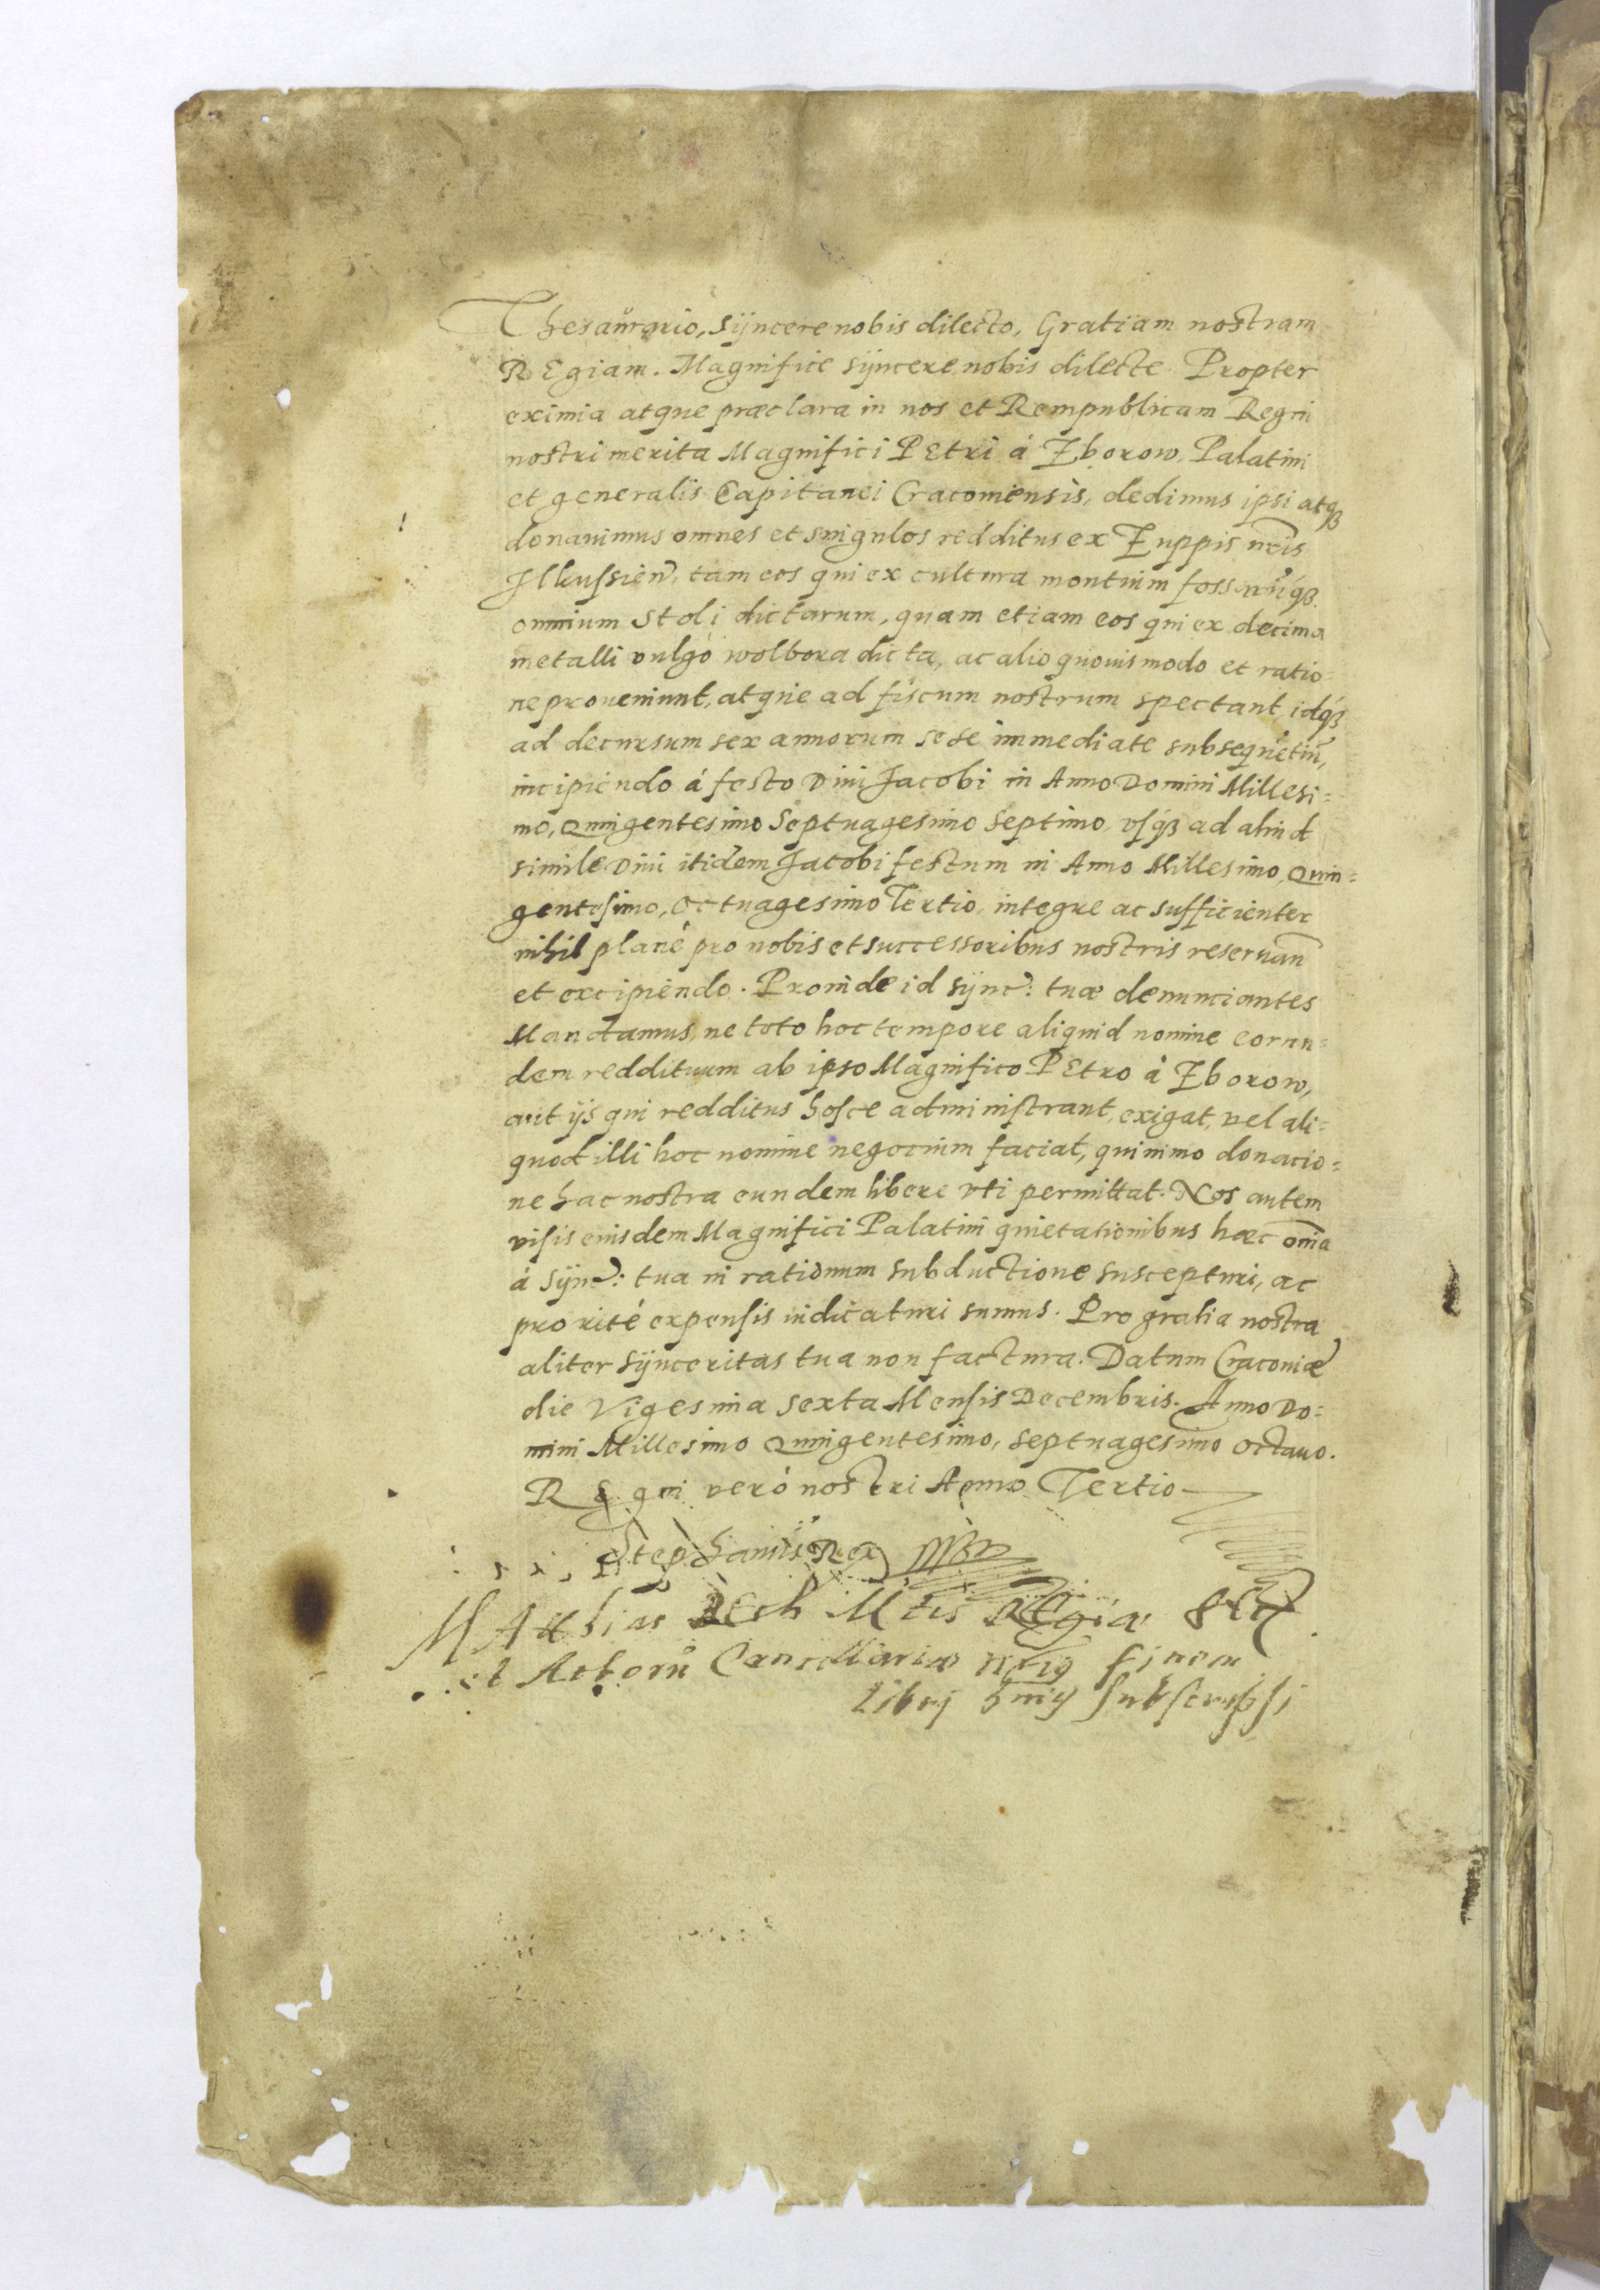 Thesaurario, Syncere nobis dilecto, Gratiam nostram
REgiam. Magnifice syncere nobis dilecte. Propter
eximia atque præclara in nos et Rempublicam Regni
nostri merita Magnifici PEtri á Zborow, Palatini
et generalis Capitanei Cracoviensis, dedimus ipsi atqȝ
donavimus omnes et singulos redditus ex Zuppis nr̃is
Ilkussien̄, tam eos qui ex cultura montium fossarūqȝ
omnium Stoli dictarum, quam etiam eos qui ex decima
metalli vulgò wolbora dicta, ac alio quovis modo et ratio-
ne proveniunt, atque ad fiscum nostrum spectant, idqȝ
ad decursum sex annorum sese immediate subsequētiū,
incipiendo á festo Divi Jacobi in Anno Domini Millesi=
mo, Quingentesimo Septuagesimo Septimo, usqȝ ad aliud
simile Divi itidem Jacobi festum in Anno Millesimo Quin=
gentesimo, Octuagesimo Tertio, integre ac sufficienter
nihil planè pro nobis et successoribus nostris reservan̄
et excipiendo. Proinde id sync: tuæ denunciantes
Mandamus, ne toto hoc tempore aliquid nomine eorun=
dem reddituum ab ipso Magnifico PEtro à Zborow,
aut ijs qui redditus hosce administrant, exigat, vel ali=
quod illi hoc nomine negocium faciat, quinimo donacio=
ne hac nostra eundem libere uti permittat. Nos autem
visis eiusdem Magnifici Palatini quietationibus hæc om̄ia
á Sync: tua in rationum subductione suscepturi, ac
pro rité expensis indicaturi sumus. Pro gratia nostra
aliter synceritas tua non factura. Datum Cracoviæ
die Vigesima Sexta Mensis Decembris. Anno Do=
mini Millesimo Quingentesimo, Septuagesimo Octavo.
REgni verò nostri Anno Tertio
Stephanus Rex
MAtthias Mtis REgiæ
et Actorū Cancellariæ finem
Libri huius subscripsi